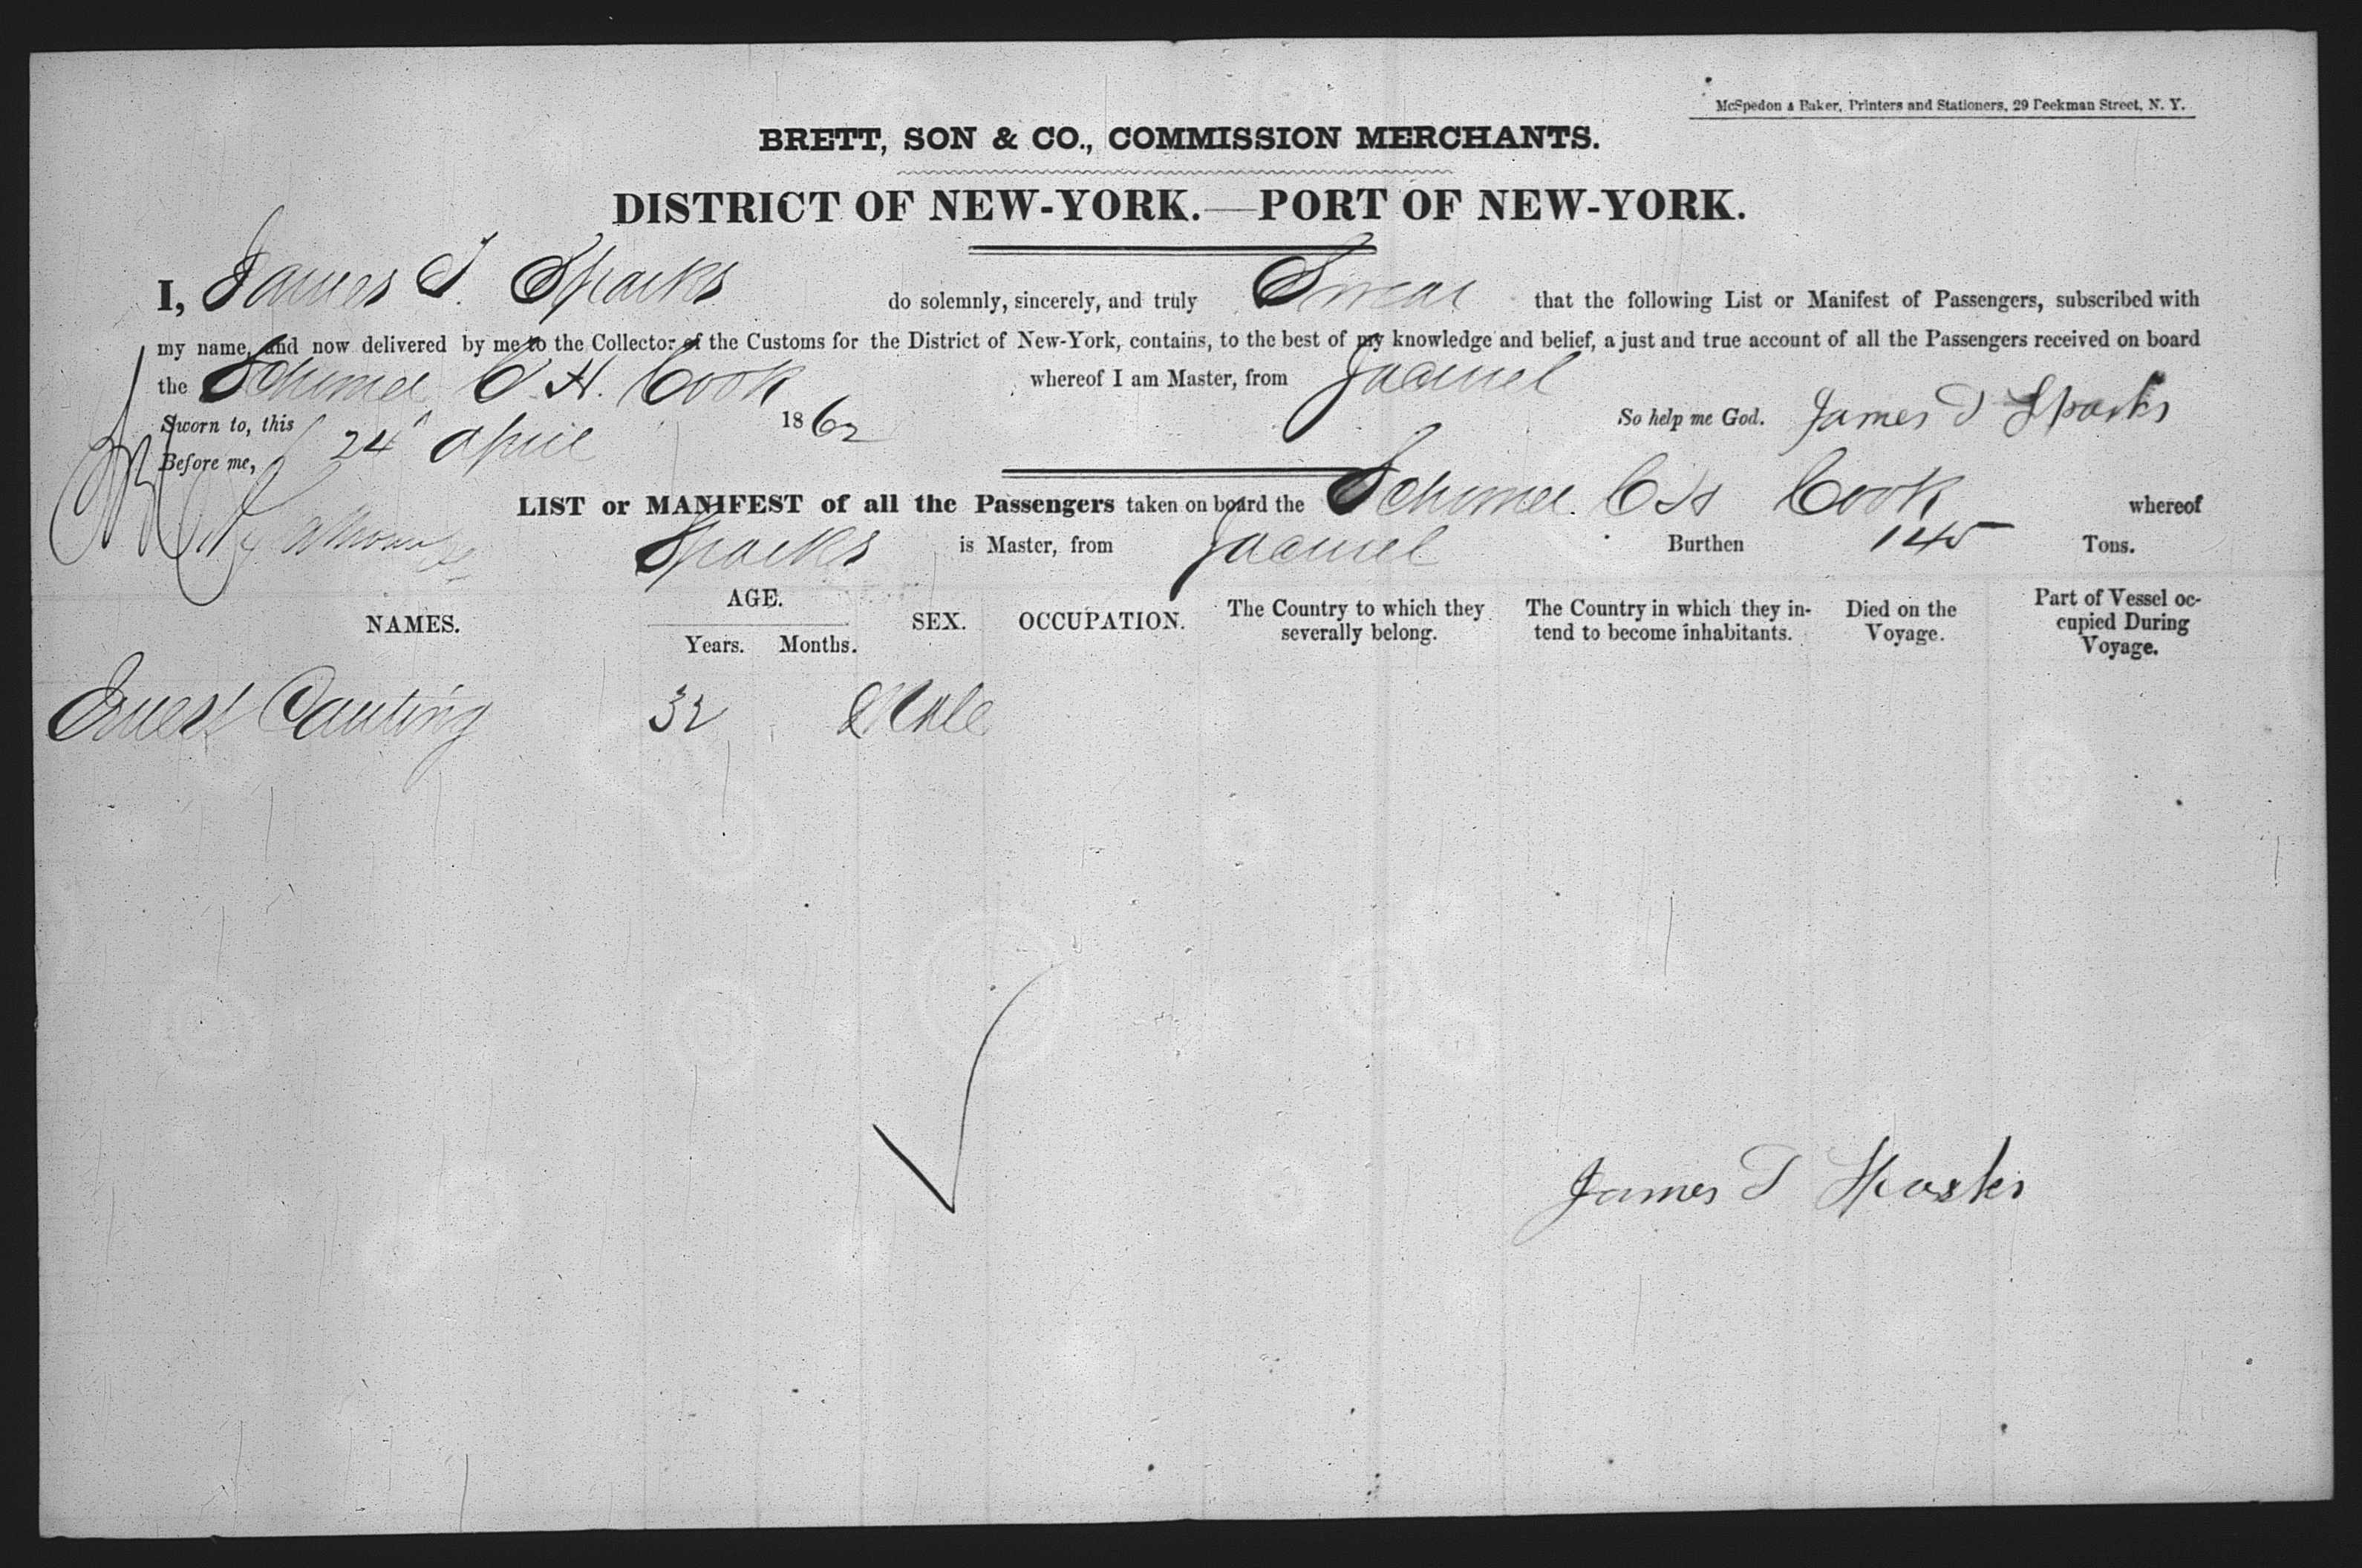 McSpedon & Baker, Printers and Stationers, 29 Beekman Street, N. Y.
BRETT, SON & CO., COMMISSION MERCHANTS.
DISTRICT OF NEW-YORK.—PORT OF NEW-YORK.
I, James T. Sparks do solemnly, sincerely, and truly Swear that the following List or Manifest of Passengers, subscribed with
my name, and now delivered by me to the Collector of the Customs for the District of New-York, contains, to the best of my knowledge and belief, a just and true account of all the Passengers received on board
the Schooner C. H. Cook whereof I am Master, from Jacmel
Sworn to, this 24 April 1862 So help me God. James T Sparks
Before me,
LIST or MANIFEST of all the Passengers taken on board the Schooner C H Cook whereof
Sparks is Master, from Jacmel Burthen 145 Tons.
NAMES. AGE. Years. Months. SEX. OCCUPATION. The Country to which they severally belong. The Country in which they intend to become inhabitants. Died on the Voyage. Part of Vessel occupied During Voyage.
Ernest Cauting 32 Male
James T Sparks